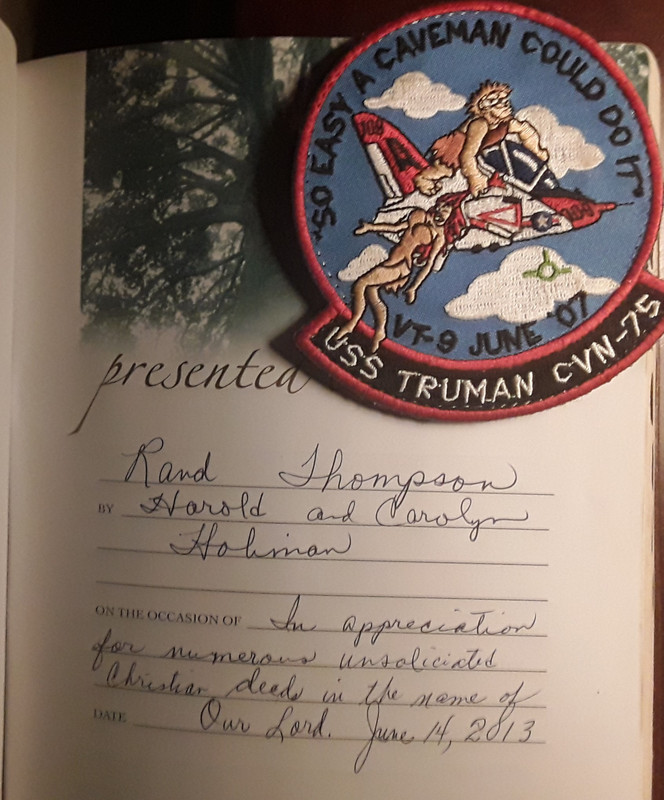 "SO EASY A CAVEMAN COULD DO IT"
VT-9 JUNE '07
USS TRUMAN CVN-75
presented
Rand Thompson
BY Harold and Carolyn
ON THE OCCASION OF In appreciation
for numerous unsoliciated
Christian deeds in the name of
DATE Our Lord. June 14, 2013